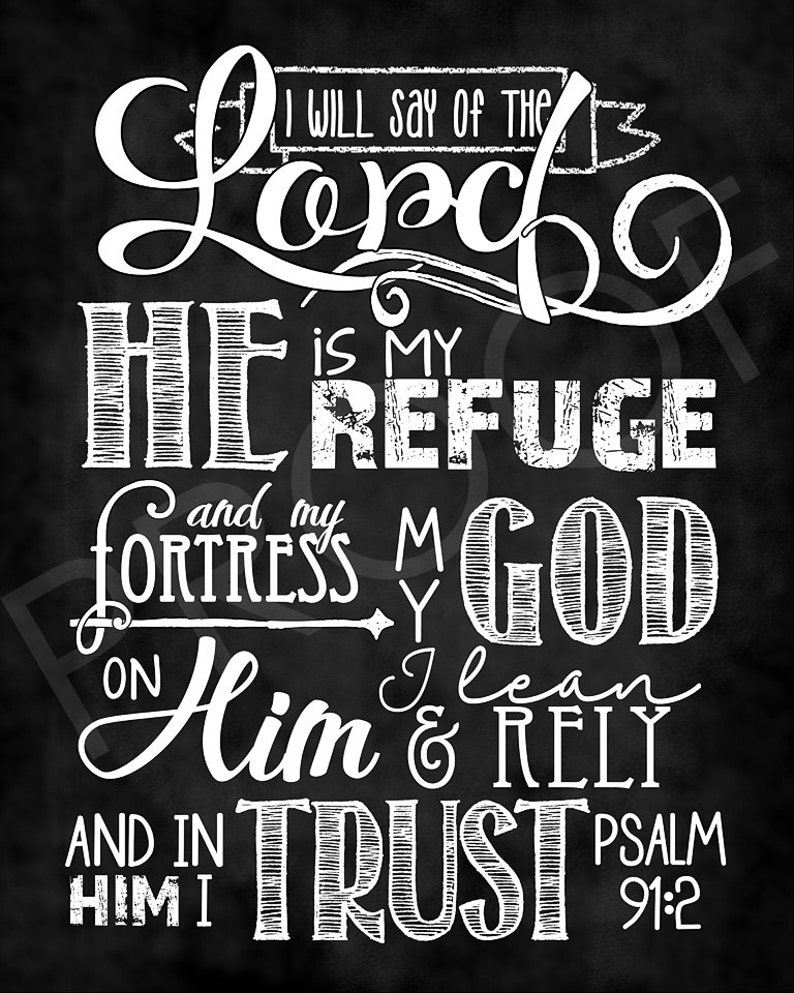 I WILL SAY OF THE
Lord
HE is MY
REFUGE
and my
fORTRESS
MY GOD
ON Him I lean
& RELY
AND IN
HIM I TRUST
PSALM
91:2
PROOF